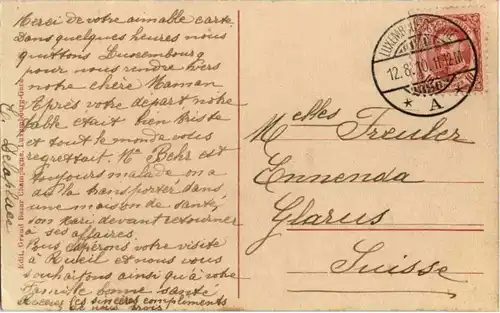 Merci de votre aimable carte
Dans quelques heures nous
quittons Luxembourg
pour nous rendre vers
notre chère Maman.
Après votre départ notre
table était bien triste
et tout le monde vous
regrettait. Me Behr est
toujours malade on a
du la transporter dans
une maison de santé,
son mari devant retourner
à ses affaires.
Nous espérons votre visite
à Rueil et nous vous
souhaitons ainsi qu'à votre
famille bonne santé
sincères compliments
de nous trois.
Delaplace
Edit. Grand Bazar Champagne, Luxembourg-Gare
LUXEMBOURG
12.8.10.
* A *
Melles Treuler
Ennenda
Glarus
Suisse